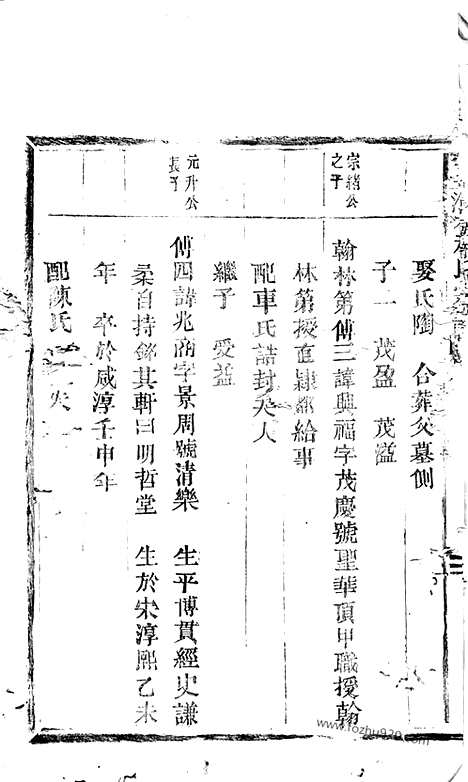 娶氏陶 合葬父墓側
子一 茂盈 茂溢
宗緒公之子
翰林第傅三諱興福字茂慶號聖華頂甲職授翰
林第授直隸都給事
配車氏誥封夫人
繼子 愛益
元升公長子
傅四諱兆商字景周號清樂 生平博貫經史謙
柔自持銘其軒曰明哲堂 生於宋淳熙乙未
年 卒於咸淳壬申年
配陳氏 失
www.fozhu920.com